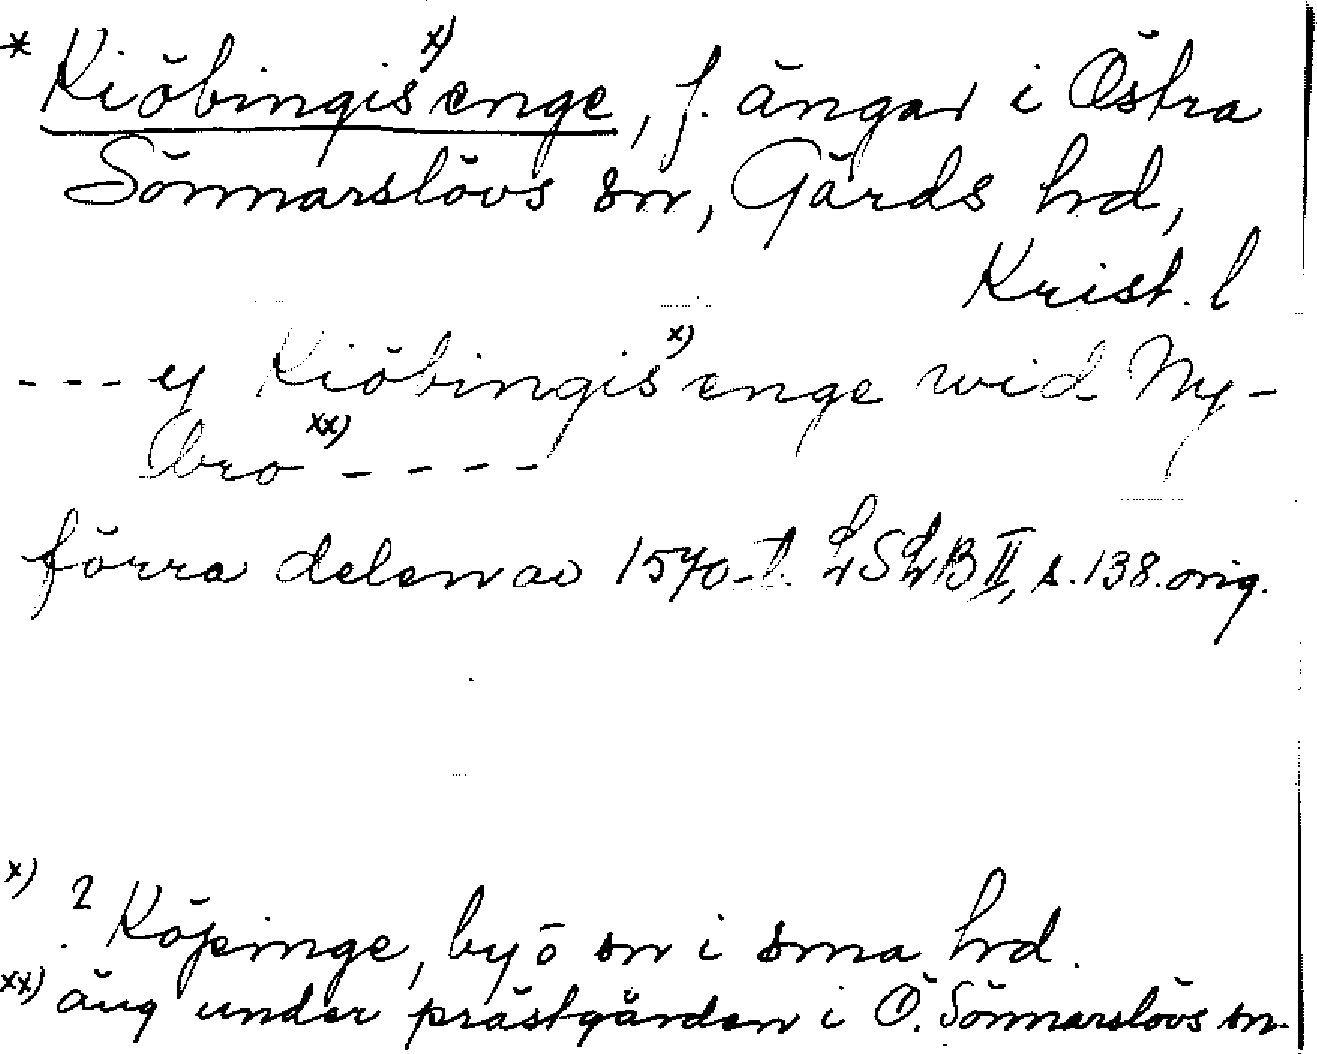 * Kiöbingis x) enge, f. ängar i Östra
Sönnarslövs sn, Gärds hd,
Krist. l
--- ej Kiöbingis x) enge wid Ny-
bro xx) ----
förra delen av 1570-t. LSLB II, s. 138. orig.
x) ? Köpinge, by o sn i sma hd.
xx) äng under prästgården i Ö. Sönnarslövs sn.